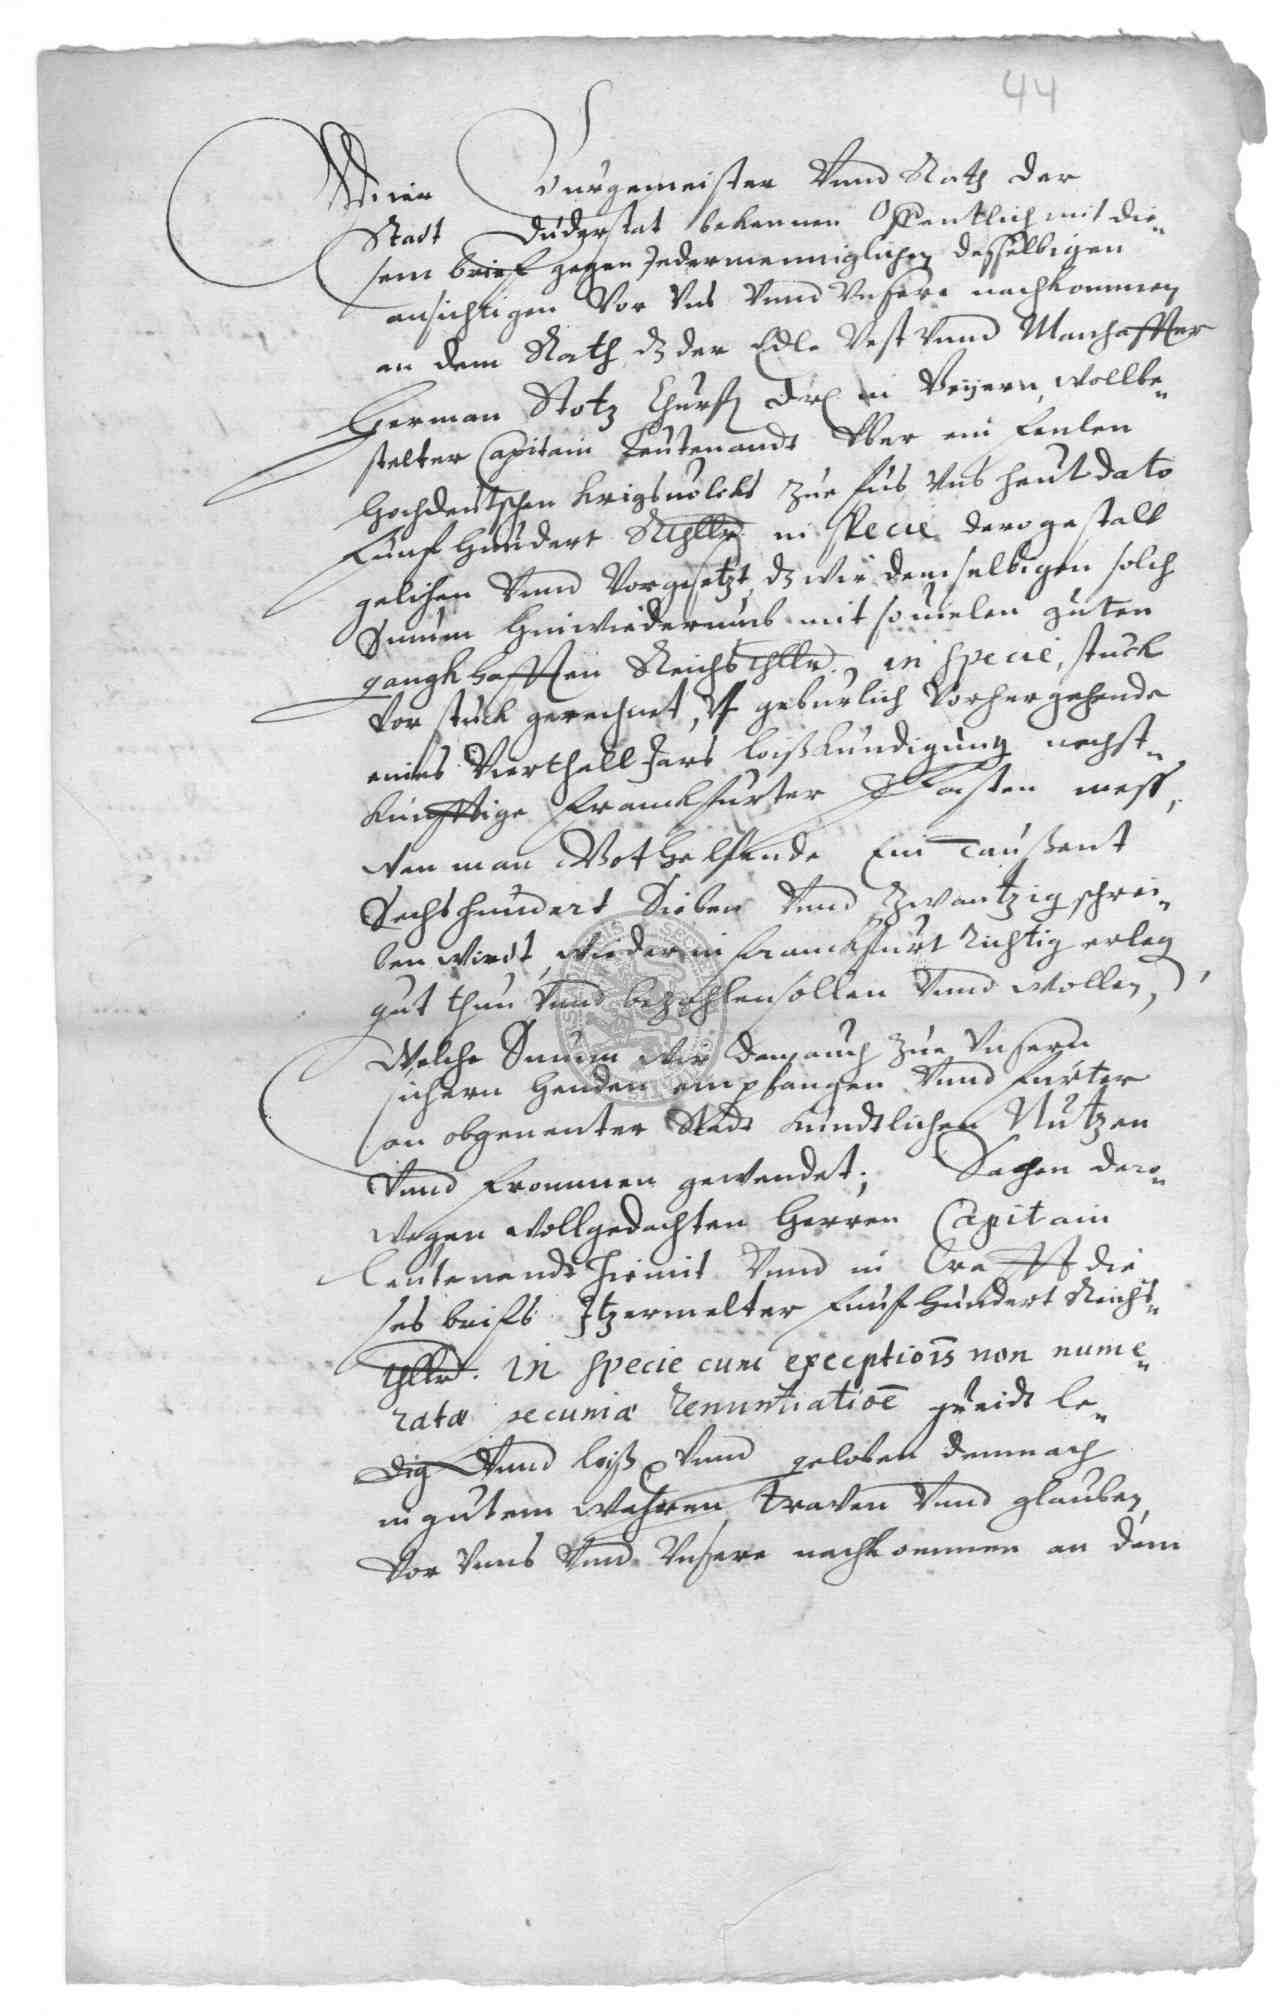 44
Wier Burgemeister Vnnd Rath der
Stadt Duderstat bekennen Offentlich mit die„
sem brief gegen Jedermenniglichen desselbigen
ansichtigen Vor Vns Vnnd Vnsere nachkommen
an dem Rath, dz der Edle Vest Vnnd Manhaffter
Herman Stotz Churf Drl in Beijern, wollbe„
stelter Capitain Leutenandt Vber ein Fenlen
Hochdeutschen Krigsuolcks Zue fus Vns heut dato
Funf Hundert Rthllr in Specie dero gestalt
gelihen Vnnd Vorgesetzt, dz wir demselbigen solch
Summ hinwiederumb mit souielen guten
gangkhafften Reichsthllr, in specie, stuck
Vor stuck gerechnet, vf geburlich Vorhergehende
eines Vierthell Jars loißkundigung nechst„
kunfftige Franckfurter Fasten mess,
wen man Ein Taußent
Sechshundert Sieben Vnnd Zwantzig schrei„
ben wirdt, wieder in franckfurt richtig erleg
gut thun Vnnd bezahlen sollen Vnnd wollen,
Welche Summ wir dan auch Zue Vnsern
sichern Henden empfangen Vnnd furter
an obgenenter Stadt kundtlichen Nutzen
Vnnd frommen gewendet; Sagen dero„
wegen wollgedachten Herren Capitain
Leutenandt hiemit Vnnd in Crafft die
ses briefs Jtzermelter Funf Hundert Reichs„
thllr. in specie cum exceptiois non nume„
ratæ pecuniæ renuntiatioē queidt le„
dig Vnnd loiß Vnnd geloben demnach
in gutem wahren trawen Vnnd glauben,
Vor Vnns Vnnd Vnsere nachkommen an dem